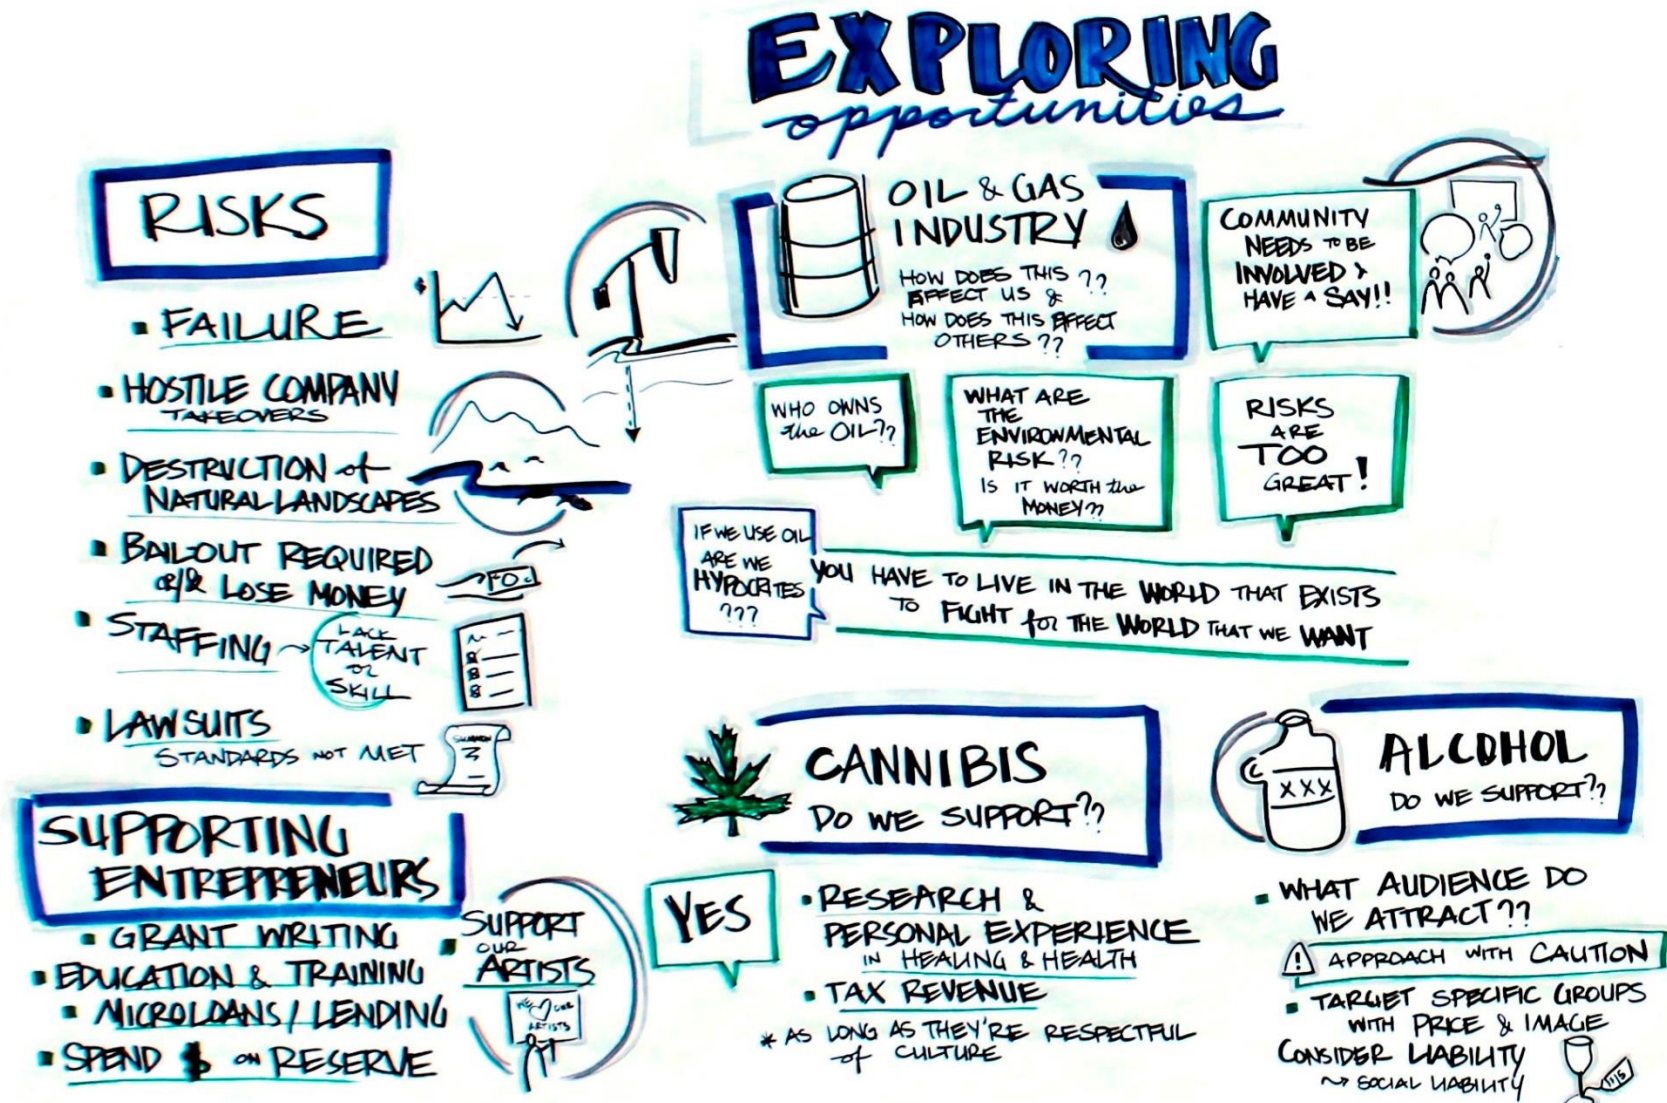 EXPLORING
opportunities
RISKS
FAILURE
$
HOSTILE COMPANY
TAKEOVERS
DESTRUCTION of
NATURAL LANDSCAPES
BAILOUT REQUIRED
or/& LOSE MONEY
STAFFING
LACK
TALENT
or
SKILL
LAWSUITS
STANDARDS NOT MET
SUPPORTING
ENTREPRENEURS
GRANT WRITING
EDUCATION & TRAINING
MICROLOANS / LENDING
SPEND $ on RESERVE
SUPPORT
OUR
ARTISTS
WE OUR
ARTISTS
OIL & GAS
INDUSTRY
HOW DOES THIS ??
EFFECT US &
HOW DOES THIS EFFECT
OTHERS ??
COMMUNITY
NEEDS TO BE
INVOLVED &
HAVE A SAY!!
WHO OWNS
the OIL??
WHAT ARE
THE
ENVIRONMENTAL
RISK??
IS IT WORTH the
MONEY??
RISKS
ARE
TOO
GREAT!
IF WE USE OIL
ARE WE
HYPOCRITES
???
YOU HAVE TO LIVE IN THE WORLD THAT EXISTS
TO FIGHT for THE WORLD THAT WE WANT
CANNIBIS
DO WE SUPPORT??
YES
RESEARCH &
PERSONAL EXPERIENCE
IN HEALING & HEALTH
TAX REVENUE
* AS LONG AS THEY'RE RESPECTFUL
of CULTURE
XXX
ALCOHOL
DO WE SUPPORT??
WHAT AUDIENCE DO
WE ATTRACT??
! APPROACH WITH CAUTION
TARGET SPECIFIC GROUPS
WITH PRICE & IMAGE
CONSIDER LIABILITY
SOCIAL LIABILITY